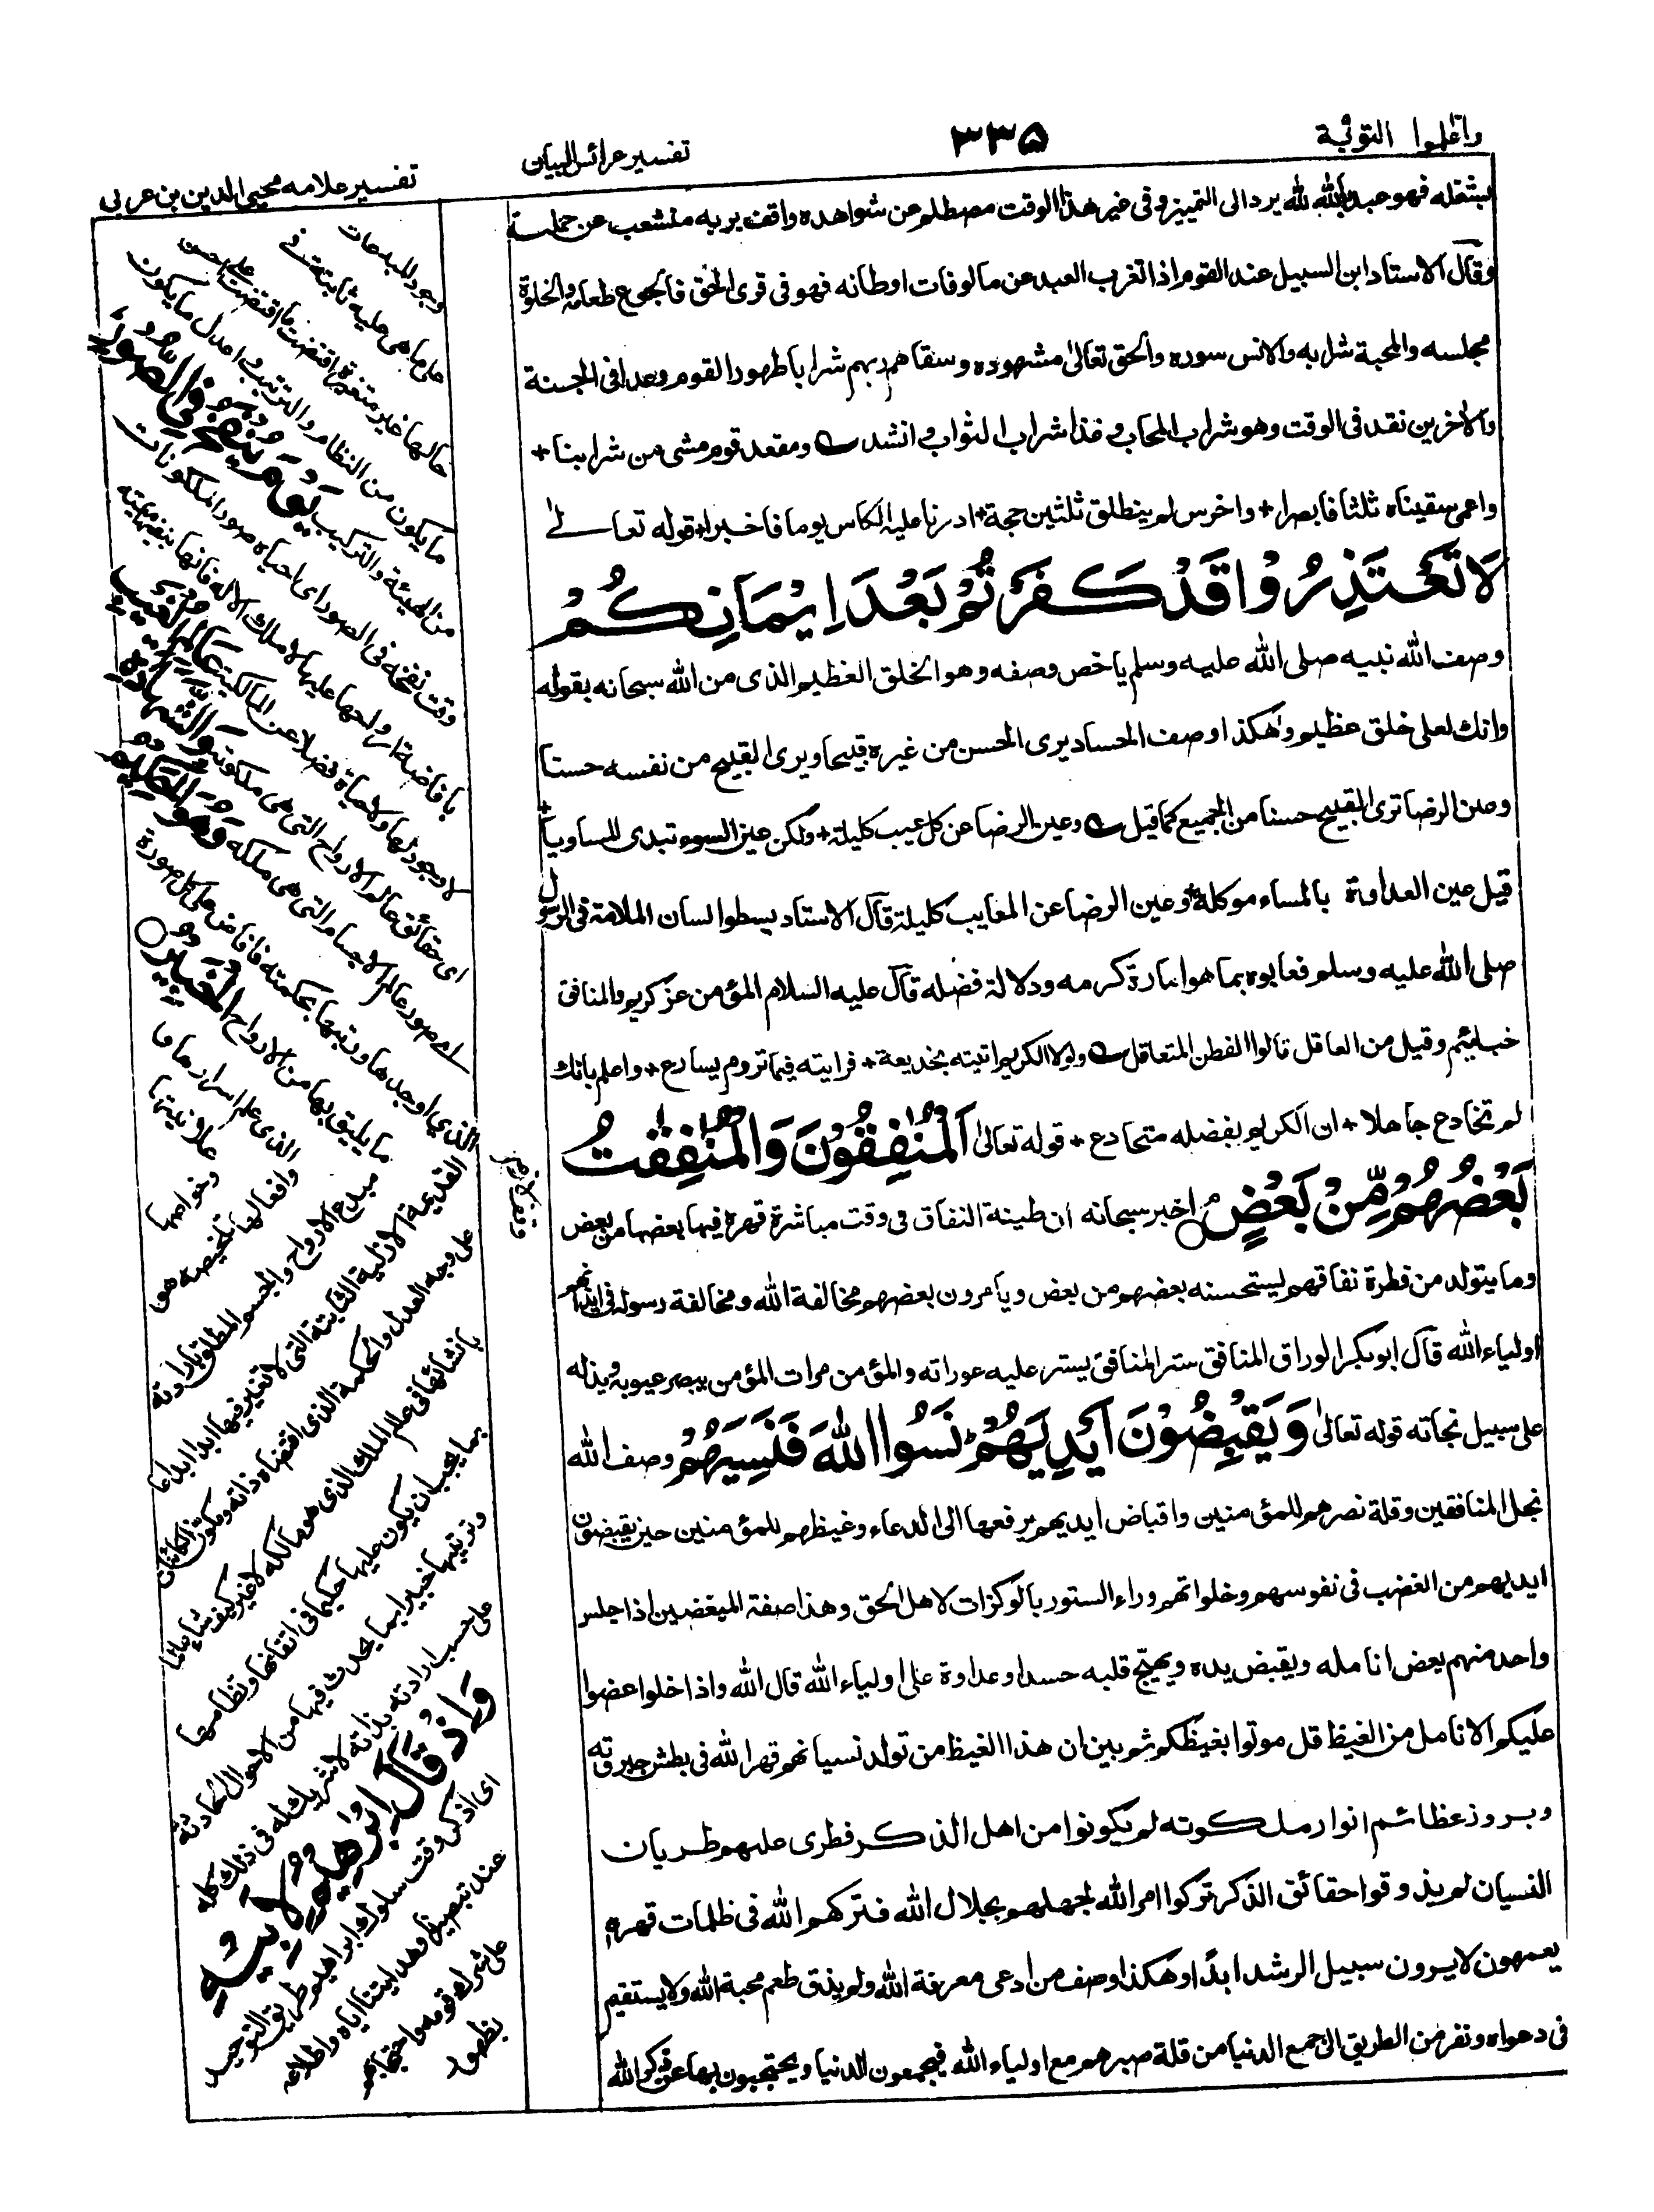 واعلموا التوبة
٣٣٥
تفسير عرائس البيان
تفسير علامه محيي الدين بن عربي
فهو عبد الله لله يرد الى التمييز وفى غير هذا الوقت مصطلم عن شواهده واقف بربه منشعب عن جملته
وقال الاستاد ابن السبيل عند القوم اذا تغرب العبد عن مالوفات اوطانه فهو فى قرى الحق فالجوع طعامه والخلوة
مجلسه والمحبة شرابه والانس سوره والحق تعالى مشهوده وسقاهم ربهم شرابا طهورا لقوم وعدا فى الجنة
والاخرين نقد فى الوقت وهو شراب المحاب وغذا شراب الثواب وانشد ومقعد قوم مشى من شرابنا +
واعمى سقيناه ثلثا فابصرا + واخرس لم ينطق ثلثين حجة + ادرنا عليه الكاس يوما فاخبرا + قوله تعالى
لَا تَعْتَذِرُوْا قَدْ كَفَرْتُمْ بَعْدَ اِيْمَانِكُمْ
وصف الله نبيه صلى الله عليه وسلم ياخص وصفه وهو الخلق العظيم الذى من الله سبحانه بقوله
وانك لعلى خلق عظيم وهكذا وصف الحساد يرى الحسن من غيره قبيحا ويرى القبيح من نفسه حسنا
ومن الرضا ترى القبيح حسنا من الجميع كما قيل وعين الرضا عن كل عيب كليلة + ولكن عين السوء تبدى المساويا +
قيل عين العداوة بالمساء موكلة وعين الرضا عن المعايب كليلة قال الاستاد بسطوا لسان الملامة فى الرسول
صلى الله عليه وسلم فعابوه بما هو امارة كرمه ودلالة فضله قال عليه السلام المؤمن عز كريم والمنافق
خب لئيم وقيل من العاقل قالوا الفطن المتعاقل ولولا الكريم اتيته بخديعة + فرايته فيما تروم يسارع + واعلم بانك
لم تخادع جاهلا + ان الكريم بفضله متخادع + قوله تعالى اَلْمُنٰفِقُوْنَ وَالْمُنٰفِقٰتُ
بَعْضُهُمْ مِّنْ بَعْضٍ اخبر سبحانه ان طينة النفاق فى وقت مباشرة قهره فيها بعضها من بعض
وما يتولد من فطرة نفاقهم ليستحسنه بعضهم من بعض ويامرون بعضهم مخالفة الله ومخالفة رسوله فى ايذائهم
اولياء الله قال ابو بكر الوراق المنافق ستر المنافق يستر عليه عوراته والمؤمن مرات المؤمن يبصر عيوبه ويذله
على سبيل نجاته قوله تعالى وَيَقْبِضُوْنَ اَيْدِيَهُمْ نَسُوا اللهَ فَنَسِيَهُمْ وصف الله
نجل المنافقين وقلة نصرهم للمؤمنين واقباض ايديهم يرفعها الى الدعاء وغيظهم للمؤمنين حين يقبضون
ايديهم من الغضب فى نفوسهم وخلواتهم وراء الستور بالوكزات لاهل الحق وهذا صفة المبغضين اذا جلس
واحد منهم بعض انامله ويقبض يده ويهيّج قلبه حسدا وعداوة على اولياء الله قال الله واذا خلوا عضوا
عليكم الانامل من الغيظ قل موتوا بغيظكم ثم بين ان هذا الغيظ من تولد نسيانهم قهر الله فى بطش جبروته
وبروز عظائم انوار ملكوته لم يكونوا من اهل الذكر فطرى عليهم طريان
النسيان لم يذوقوا حقائق الذكر تركوا امر الله لجهلهم بجلال الله فتركهم الله فى ظلمات قهره
يعمهون لا يرون سبيل الرشد ابدا وهكذا وصف من ادعى معرفة الله ولم يذق طعم محبة الله ولا يستقيم
فى دعواه ونفر من الطريق الى جمع الدنيا من قلة صبرهم مع اولياء الله فيجمعون الدنيا ويحتجبون بها عن ذكر الله
وجود المبدعات
على ما هى عليه ثابتة فى
حالها غير متغيرة اقتضت ما اقتضت على احسن
ما يكون من النظام والترتيب واعدل ما يكون
من الهيئة والتركيب يَوْمَ يُنْفَخُ فِي الصُّوْرِ
وقت نفخه فى الصور اى احياء صور المكونات
بافاضة ارواحها عليها لا ملك الا له فانها بنفسها ميتة
لا وجود لها ولا حياة فضلا عن المالكية عَالِمُ الْغَيْبِ
اى حقائق عالم الارواح التى هى ملكوته وَالشَّهَادَةِ
اى صور عالم الاجسام التى هى ملكه وَهُوَ الْحَكِيْمُ
الذي اوجدها ورتبها بحكمته فافاض على كل صورة
ما يليق بها من الارواح الْخَبِيْرُ
الذى علم اسرارها وما
علانيتها
وخواصها
وافعالها تلخيصه هو
مبدع الارواح والجسم المطلق بارادته
القديمة الازلية الثابتة التى لا تغير فيها ابدا ابداعا
على وجه العدل والحكمة الذى اقتضاه ذاته ومكون الكائنات
بانشائها فى عالم الملك الذى هو مالكه لا غير كيف شاء عالما
بما يجب ان يكون عليها حكيما فى اتقانها ونظامها
وترتيبها خبيرا بما يحدث فيها من الاحوال الحادثة
على حسب ارادته بذاته لا شريك له فى ذلك كله
وَاِذْ قَالَ اِبْرٰهِيْمُ لِاَبِيْهِ
اى اذكر وقت سلوك ابراهيم طريق التوحيد
عند تبصيرنا وهدايتنا اياه واطلاعه
على شرك قومه واحتجابهم
بظهور